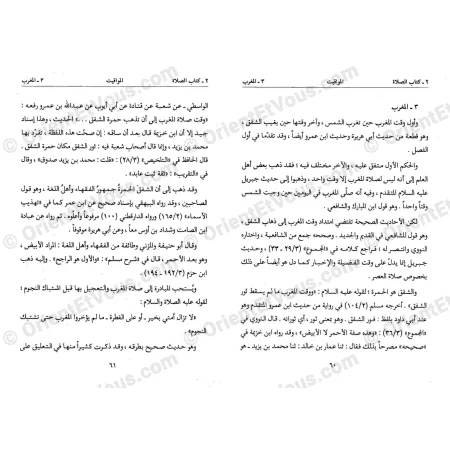 ٢ ـ كتاب الصلاة المواقيت ٣ ـ المغرب
٣ ـ المغرب
وأول وقت المغرب حين تغرب الشمس ، وآخر وقتها حين يغيب الشفق ،
وهو قطعة من حديث أبي هريرة وحديث ابن عمرو أيضاً ، وقد تقدما في أول
الفصل .
والحكم الأول متفق عليه ، والآخر مختلف فيه ؛ فقد ذهب بعض أهل
العلم إلى أنه ليس لصلاة المغرب إلا وقت واحد ، وذهبوا إلى حديث جبريل
عليه السلام المتقدم ، وفيه أنه صلى المغرب في اليومين حين وجبت الشمس
وقتاً واحداً . وهو قول ابن المبارك والشافعي .
لكن الأحاديث الصحيحة تقتضي امتداد وقت المغرب إلى ذهاب الشفق ،
وهو قول للشافعي في القديم والجديد . وصححه جمع من الشافعية ، واختاره
النووي وانتصر له ، فراجع كلامه في «المجموع» (٢٩/٣ ـ ٣٣) ، وحديث
جبريل إنما يدل على وقت الفضيلة والإخبار كما دل هو أيضاً على ذلك
بخصوص صلاة العصر .
والشفق هو الحمرة ؛ لقوله عليه السلام : «ووقت المغرب ما لم يسقط ثور
الشفق» . أخرجه مسلم (١٠٤/٢) في رواية من حديث ابن عمرو المتقدم وهو
عند أبي داود بلفظ : فور الشفق . وهو بمعنى ثور ، أي ثورانه . قال النووي في
«المجموع» (٣٦/٣) : «وهذه صفة الأحمر لا الأبيض» ، وقد رواه ابن خزيمة في
«صحيحه» مصرحاً بذلك فقال : ثنا عمار بن خالد : ثنا محمد بن يزيد ـ هو
٦٠
٢ ـ كتاب الصلاة المواقيت ٣ ـ المغرب
الواسطي ـ عن شعبة عن قتادة عن أبي أيوب عن عبدالله بن عمرو رفعه :
«وقت صلاة المغرب إلى أن تذهب حمرة الشفق . . .» الحديث ، وهذا إسناد
جيد إلا أن ابن خزيمة قال بعد أن ساقه : إن صحت هذه اللفظة ، تفرد بها
محمد بن يزيد ، وإنما قال أصحاب شعبة فيه : ثور الشفق مكان حمرة الشفق .
قال الحافظ في «التلخيص» (٢٨/٣) : «قلت : محمد بن يزيد صدوق» ، وقال
في «التقريب» : «ثقة ثبت عابد» .
وقد ذهب إلى أن الشفق الحمرة جمهور الفقهاء وأهل اللغة ، وهو قول
ابن عمر رواه البيهقي بإسناد صحيح عن ابن عمر كما في «تهذيب
الأسماء» (١٦٥/٢) ورواه الدارقطني (١٠٠) مرفوعاً وأعله ، ثم رواه عن عبادة
ابن الصامت وشداد بن أوس معاً ، وعن أبي هريرة موقوفاً .
وقال أبو حنيفة والمزني وطائفة من الفقهاء وأهل اللغة : المراد الأبيض ،
وهو بعد الأحمر ، قال في «شرح مسلم» : «والأول هو الراجح» . وإليه ذهب
ابن حزم (١٩٢/٣ ـ ١٩٤) .
ويستحب المبادرة إلى صلاة المغرب والتعجيل بها قبل اشتباك النجوم ؛
لقوله عليه الصلاة والسلام :
«لا تزال أمتي بخير ـ أو على الفطرة ـ ما لم يؤخروا المغرب حتى تشتبك
النجوم» .
وهو حديث صحيح بطرقه ، وقد ذكرت كثيراً منها في التعليق على
٦١
© OrientEtVous.com